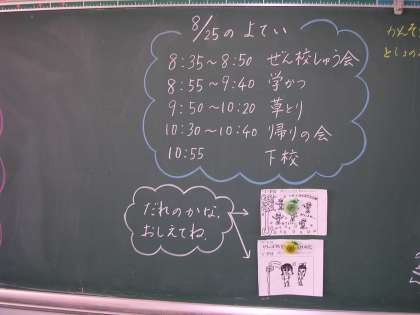 8/25のよてい
8:35～8:50 ぜん校しゅう会
8:55～9:40 学かつ
9:50～10:20 草とり
10:30～10:40 帰りの会
10:55 下校
だれのかな、
おしえてね。